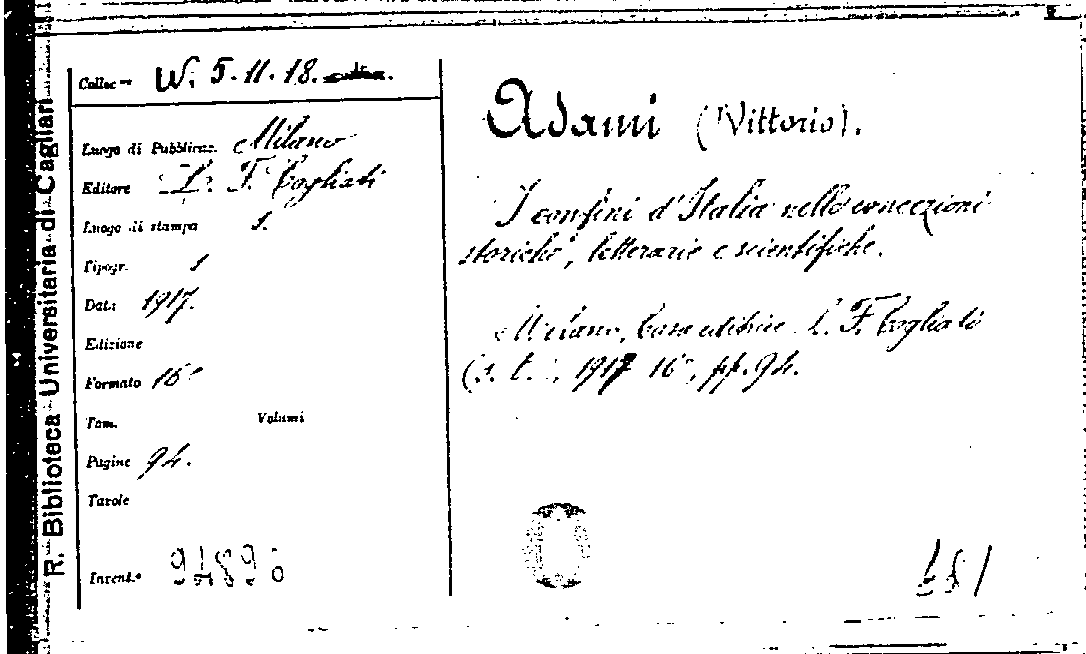 R. Biblioteca Universitaria di Cagliari
Colloc ne W. 5. 11. 18.
Luogo di Pubblicaz. Milano
Editore L. F. Cogliati
Luogo di stampa s.
Tipogr.
Data 1917.
Edizione
Formato 16°
Tom. Volumi
Pagine 94.
Tavole
Invent.°
Adami (Vittorio).
I confini d'Italia nelle concezioni
storiche, letterarie e scientifiche.
Milano, Casa editrice L. F. Cogliati
(s. t.), 1917 16°, pp. 94.